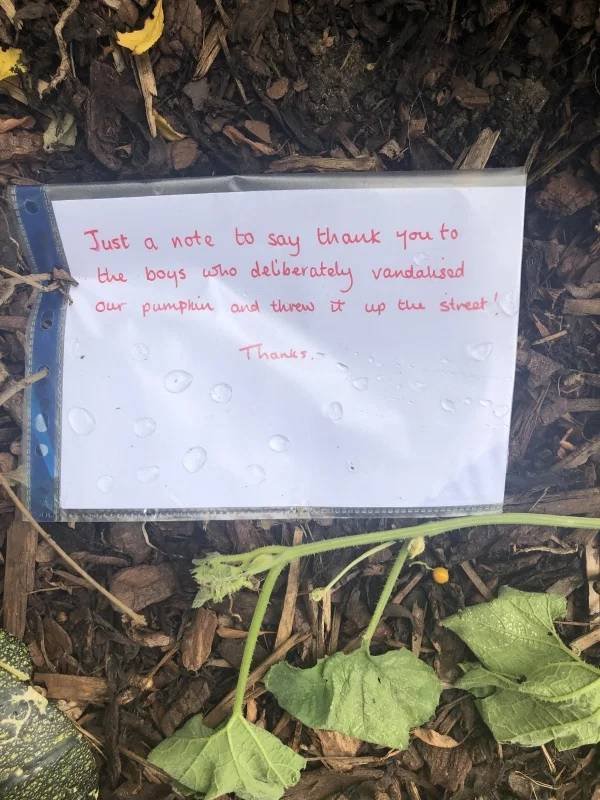 Just a note to say thank you to
the boys who deliberately vandalised
our pumpkin and threw it up the street!
Thanks.